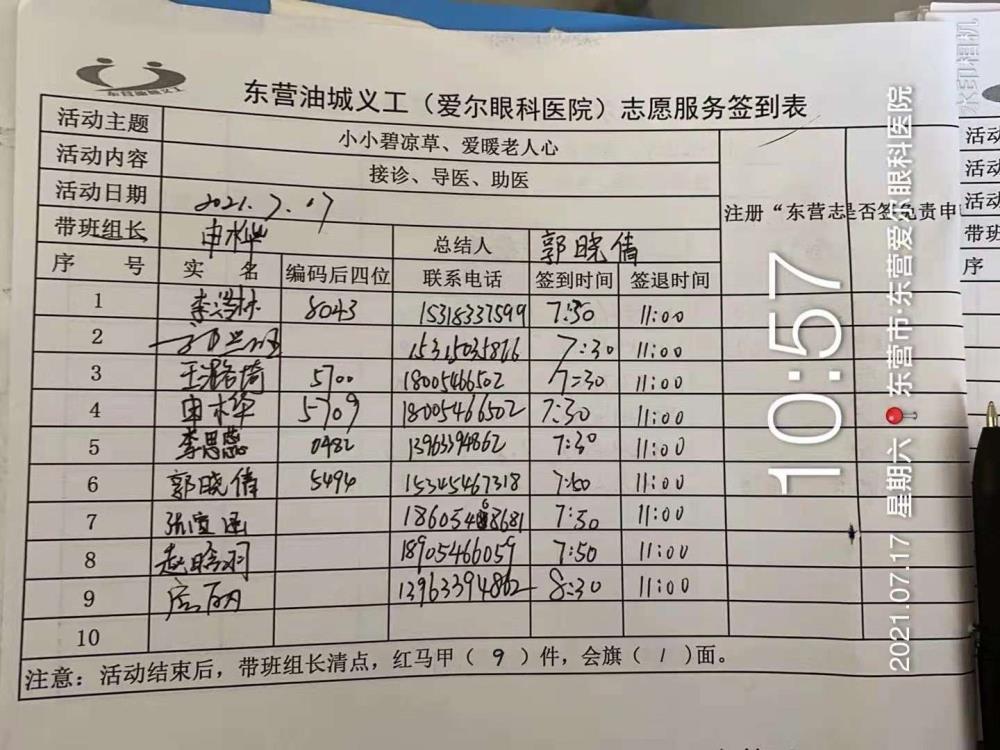 东营油城义工
东营油城义工（爱尔眼科医院）志愿服务签到表
活动主题 小小碧凉草、爱暖老人心
活动内容 接诊、导医、助医
活动日期 2021.7.17
注册“东营志 是否签免责申
带班组长 申桦 总结人 郭晓倩
序号 实名 编码后四位 联系电话 签到时间 签退时间
1 李浩林 8043 15318337599 7:30 11:00
2 7:30 11:00
3 王潞琦 5700 18005466502 7:30 11:00
4 申桦 5709 18005466502 7:30 11:00
5 李思蕊 0482 13963394862 7:30 11:00
6 郭晓倩 5494 15345467318 11:00
7 11:00
8 赵晗羽 18905466059 7:50 11:00
9 13963394862 8:30 11:00
10
注意：活动结束后，带班组长清点，红马甲（9）件，会旗（1）面。
活动
活动
活动
带班
序
水印相机
10:57
2021.07.17 星期六 东营市·东营爱尔眼科医院